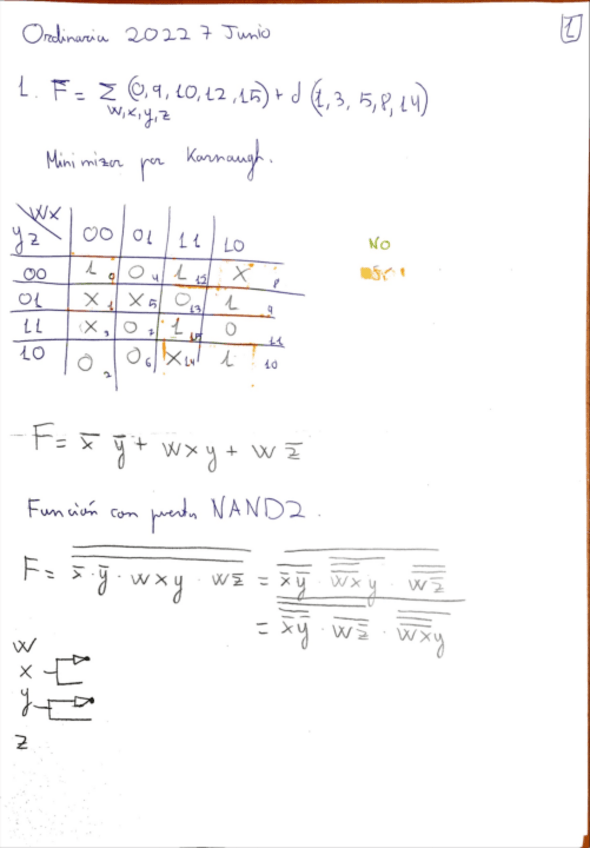 Ordinaria 2022 7 Junio
1
1. F = Σ (0,9,10,12,15) + d (1,3,5,8,14)
W,x,y,z
Minimizar por Karnaugh.
Wx
yz 00 01 11 10
00 1 0 0 4 1 12 X 8
01 X 1 X 5 0 13 1 9
11 X 3 0 7 1 15 0 11
10 0 2 0 6 X 14 1 10
NO
F = x̅ y̅ + wxy + w z̅
Función con puertas NAND2.
F = x̅·y̅ · wxy · wz̅ = x̅y̅ · wx y · wz̅
= x̅y̅ · wz̅ · wxy
W
x
y
z